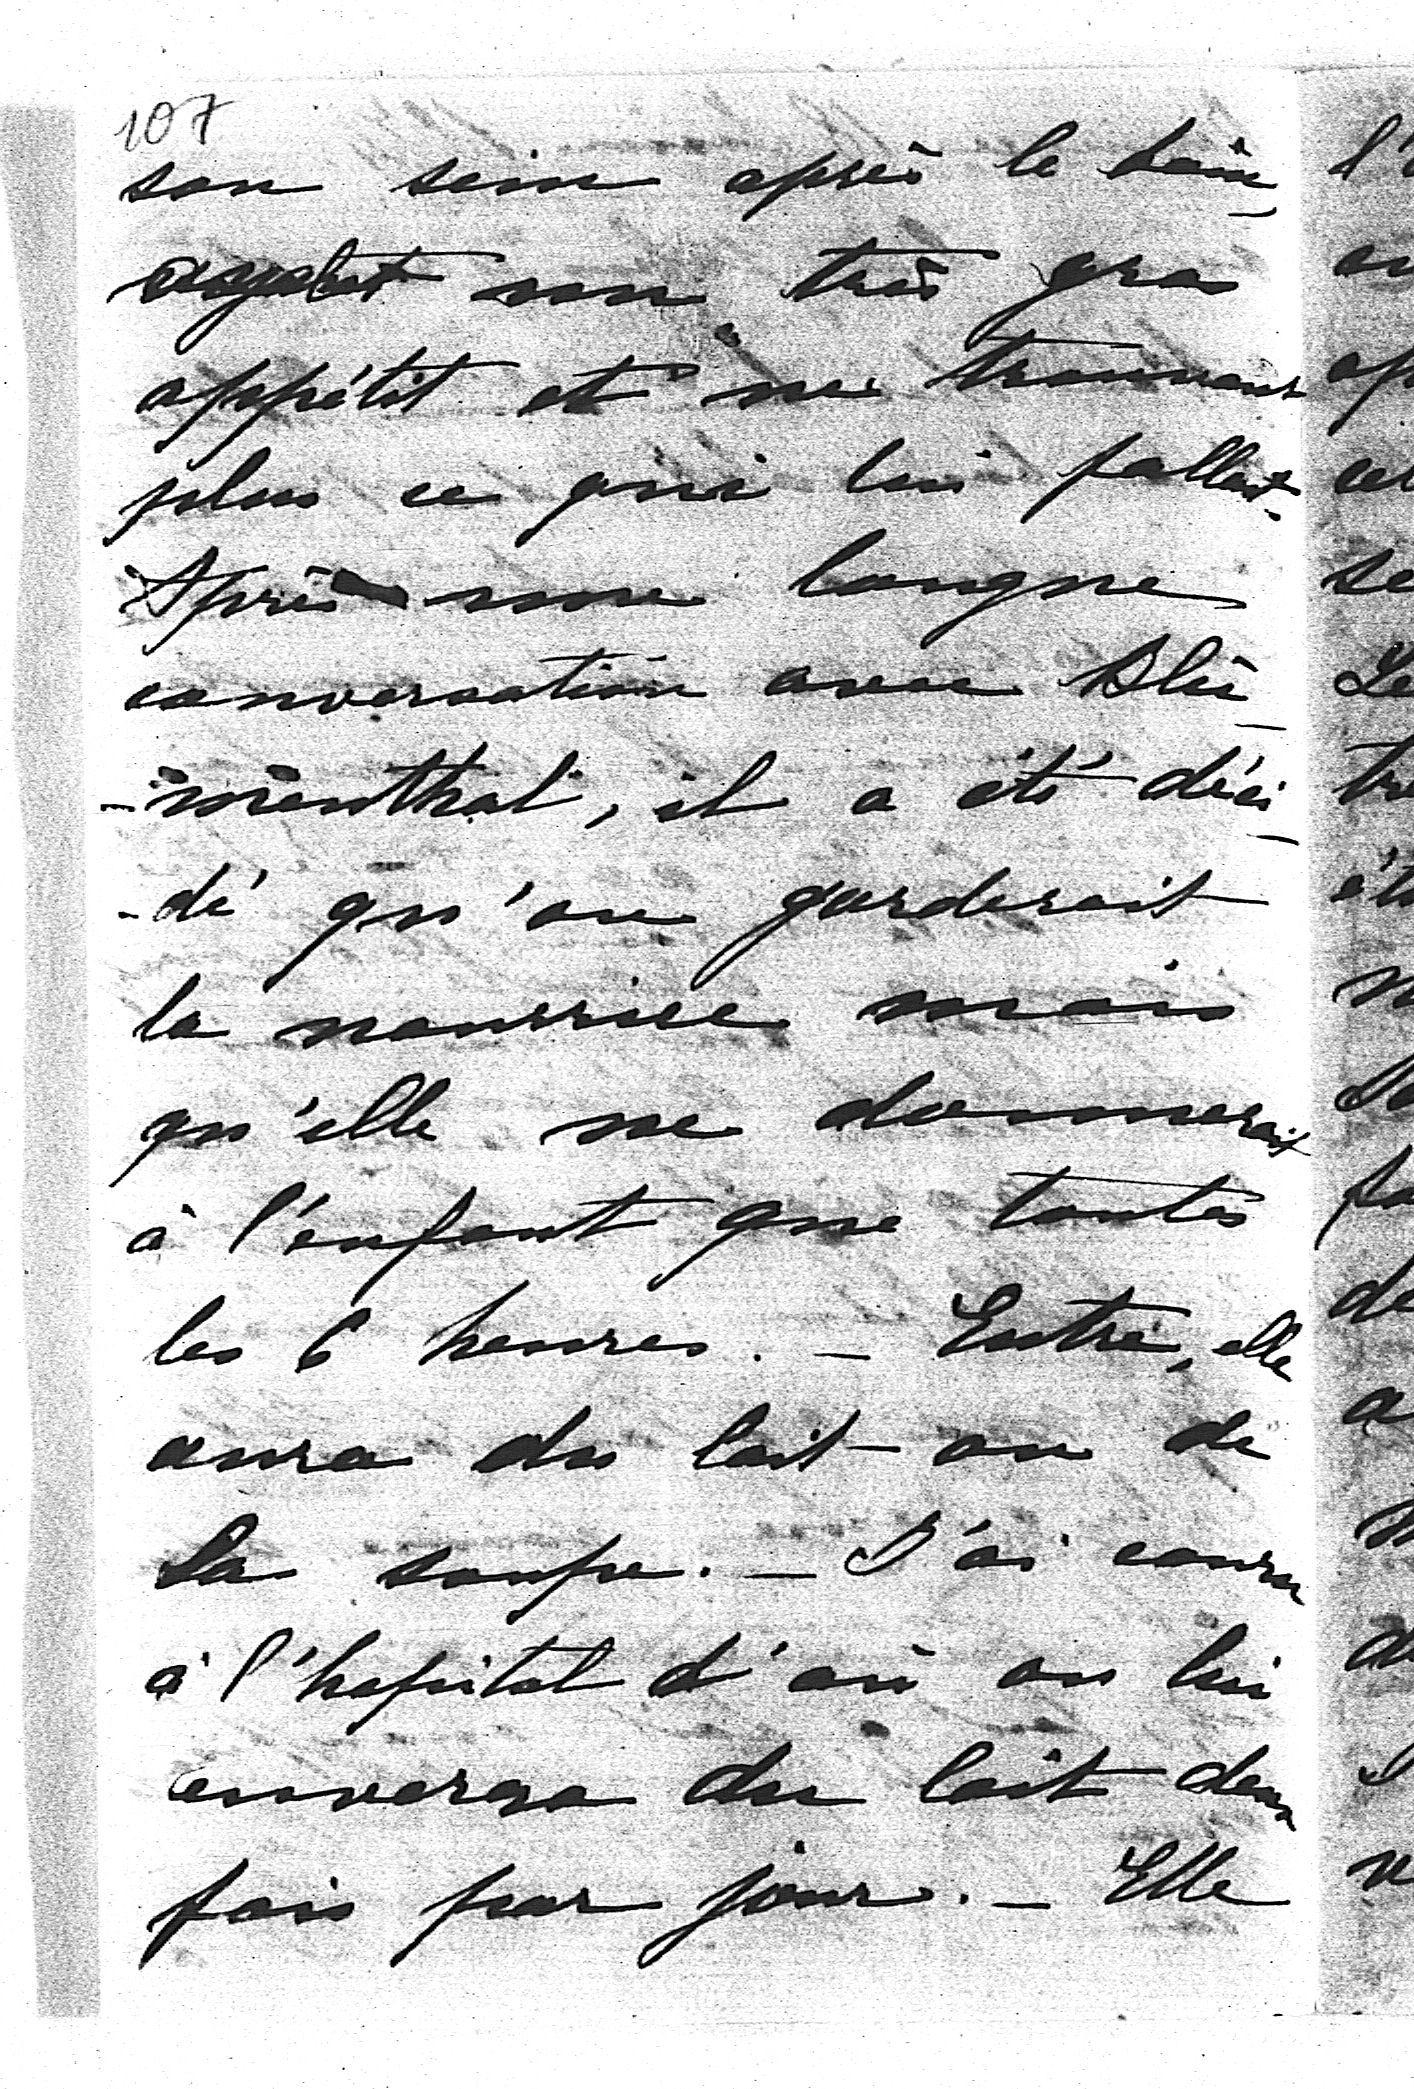 107
son sein après le bain,
ayant un très gros
appétit et ne trouvant
plus ce qui lui fallait.
Après une longue
conversation avec Blü-
-menthal, il a été déci-
-dé qu'on garderait
la nourrice mais
qu'elle ne donnerait
à l'enfant que toutes
les 6 heures. - Entre, elle
aura du lait ou de
la soupe. - J'ai couru
à l'hopital d'où on lui
enverra du lait deux
fois par jour. - Elle